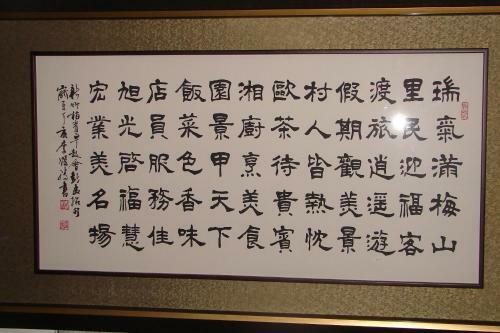 瑞氣滿梅山
里民迎福客
渡旅逍遙遊
假期觀美景
村人皆熱忱
歐茶待貴賓
湘廚烹美食
園景甲天下
飯菜色香味
店員服務佳
旭光啓福慧
宏業美名揚
新竹柏青早起會彭
丁亥李書